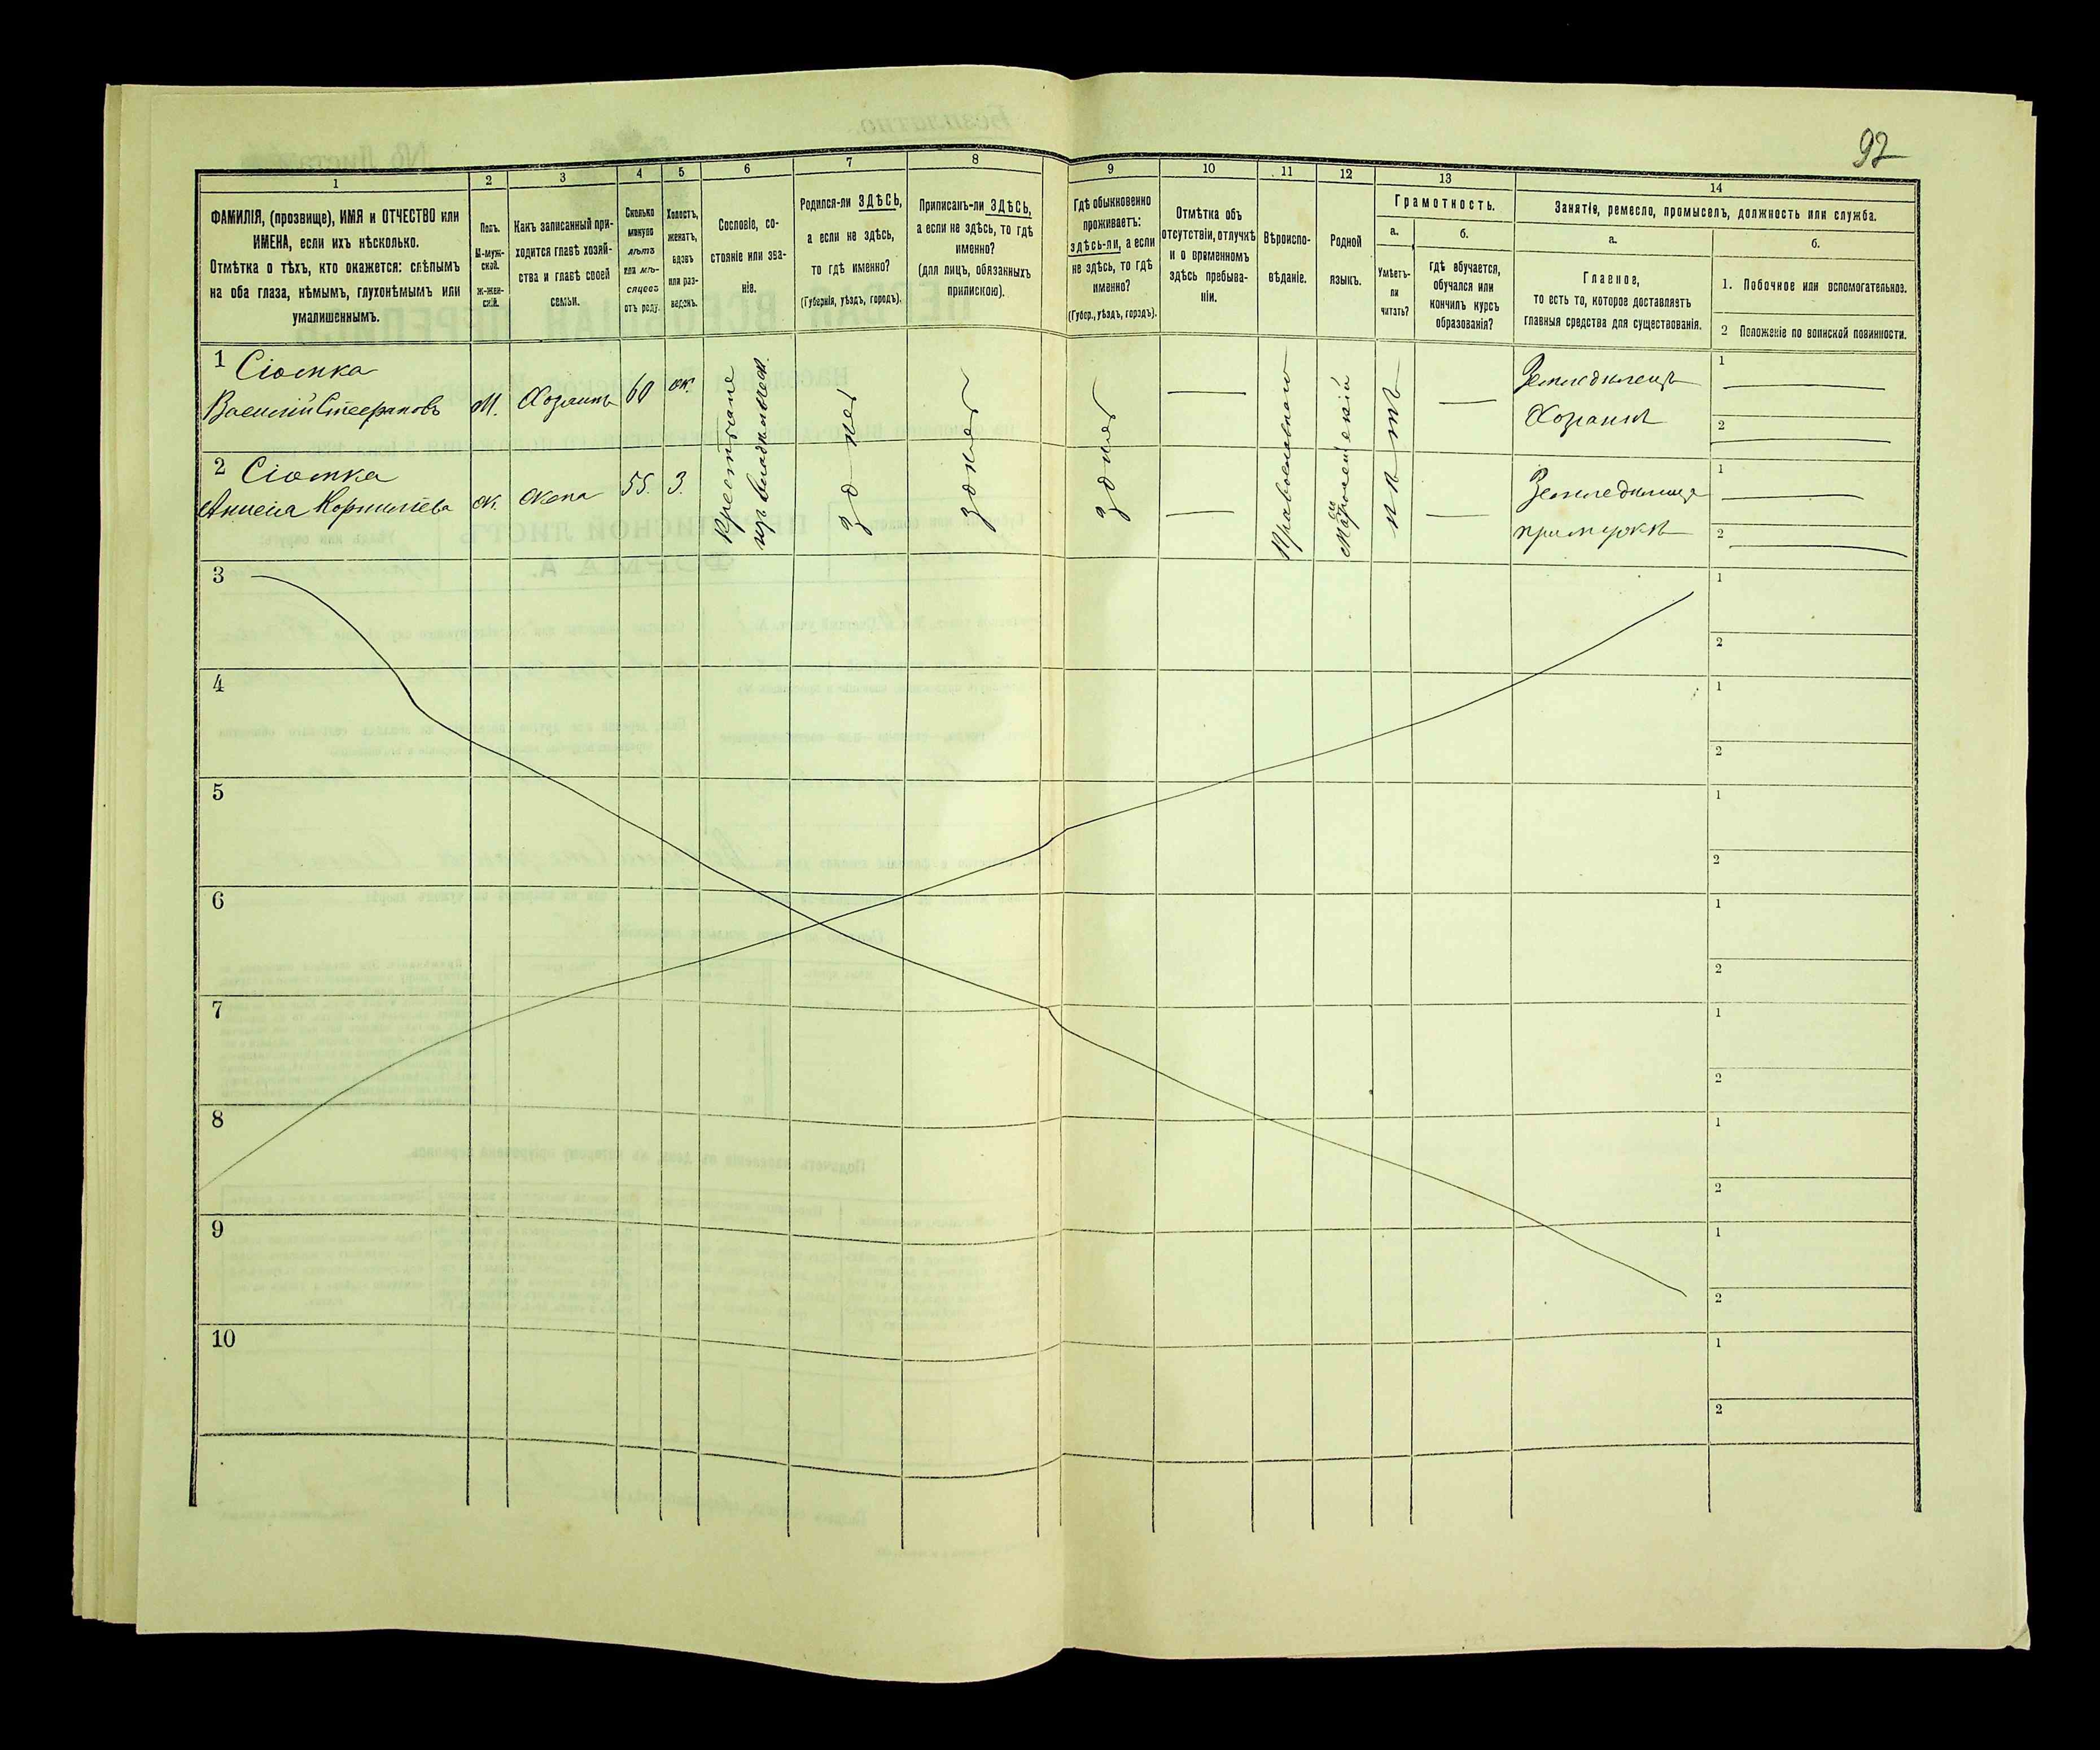 92
1 2 3 4 5 6 7 8 9 10 11 12 13 14
ФАМИЛІЯ, (прозвище), ИМЯ и ОТЧЕСТВО или
ИМЕНА, если ихъ нѣсколько.
Отмѣтка о тѣхъ, кто окажется: слѣпымъ
на оба глаза, нѣмымъ, глухонѣмымъ или
умалишеннымъ.
Полъ.
М-муж-
ской.
ж-жен-
скій.
Какъ записанный при-
ходится главѣ хозяй-
ства и главѣ своей
семьи.
Сколько
минуло
лѣтъ
или мѣ-
сяцевъ
отъ роду.
Холостъ,
женатъ,
вдовъ
или раз-
веденъ.
Сословіе, со-
стояніе или зва-
ніе.
Родился-ли ЗДѢСЬ,
а если не здѣсь,
то гдѣ именно?
(Губернія, уѣздъ, городъ).
Приписанъ-ли ЗДѢСЬ,
а если не здѣсь, то гдѣ
именно?
(для лицъ, обязанныхъ
припискою).
Гдѣ обыкновенно
проживаетъ:
здѣсь-ли, а если
не здѣсь, то гдѣ
именно?
(Губер., уѣздъ, городъ).
Отмѣтка объ
отсутствіи, отлучкѣ
и о временномъ
здѣсь пребыва-
ніи.
Вѣроиспо-
вѣданіе.
Родной
языкъ.
Грамотность.
а.
Умѣетъ-
ли
читать?
б.
гдѣ обучается,
обучался или
кончилъ курсъ
образованія?
Занятіе, ремесло, промыселъ, должность или служба.
а.
Главное,
то есть то, которое доставляетъ
главныя средства для существованія.
б.
1. Побочное или вспомогательное.
2 Положеніе по воинской повинности.
1 Сіомка
Василій Стефановъ
М. Хозяинъ 60 ж.
Земледѣлецъ
Хозяинъ
1
2
2 Сіомка
Анисія Корнилѣева
ж. жена 55. З.
Земледѣлица
при мужѣ
1
2
Крестьяне
изъ владѣльческ.
здѣсь
здѣсь
здѣсь
Православнаго
Малоросійскій
нѣтъ
3 1
2
4 1
2
5 1
2
6 1
2
7 1
2
8 1
2
9 1
2
10 1
2